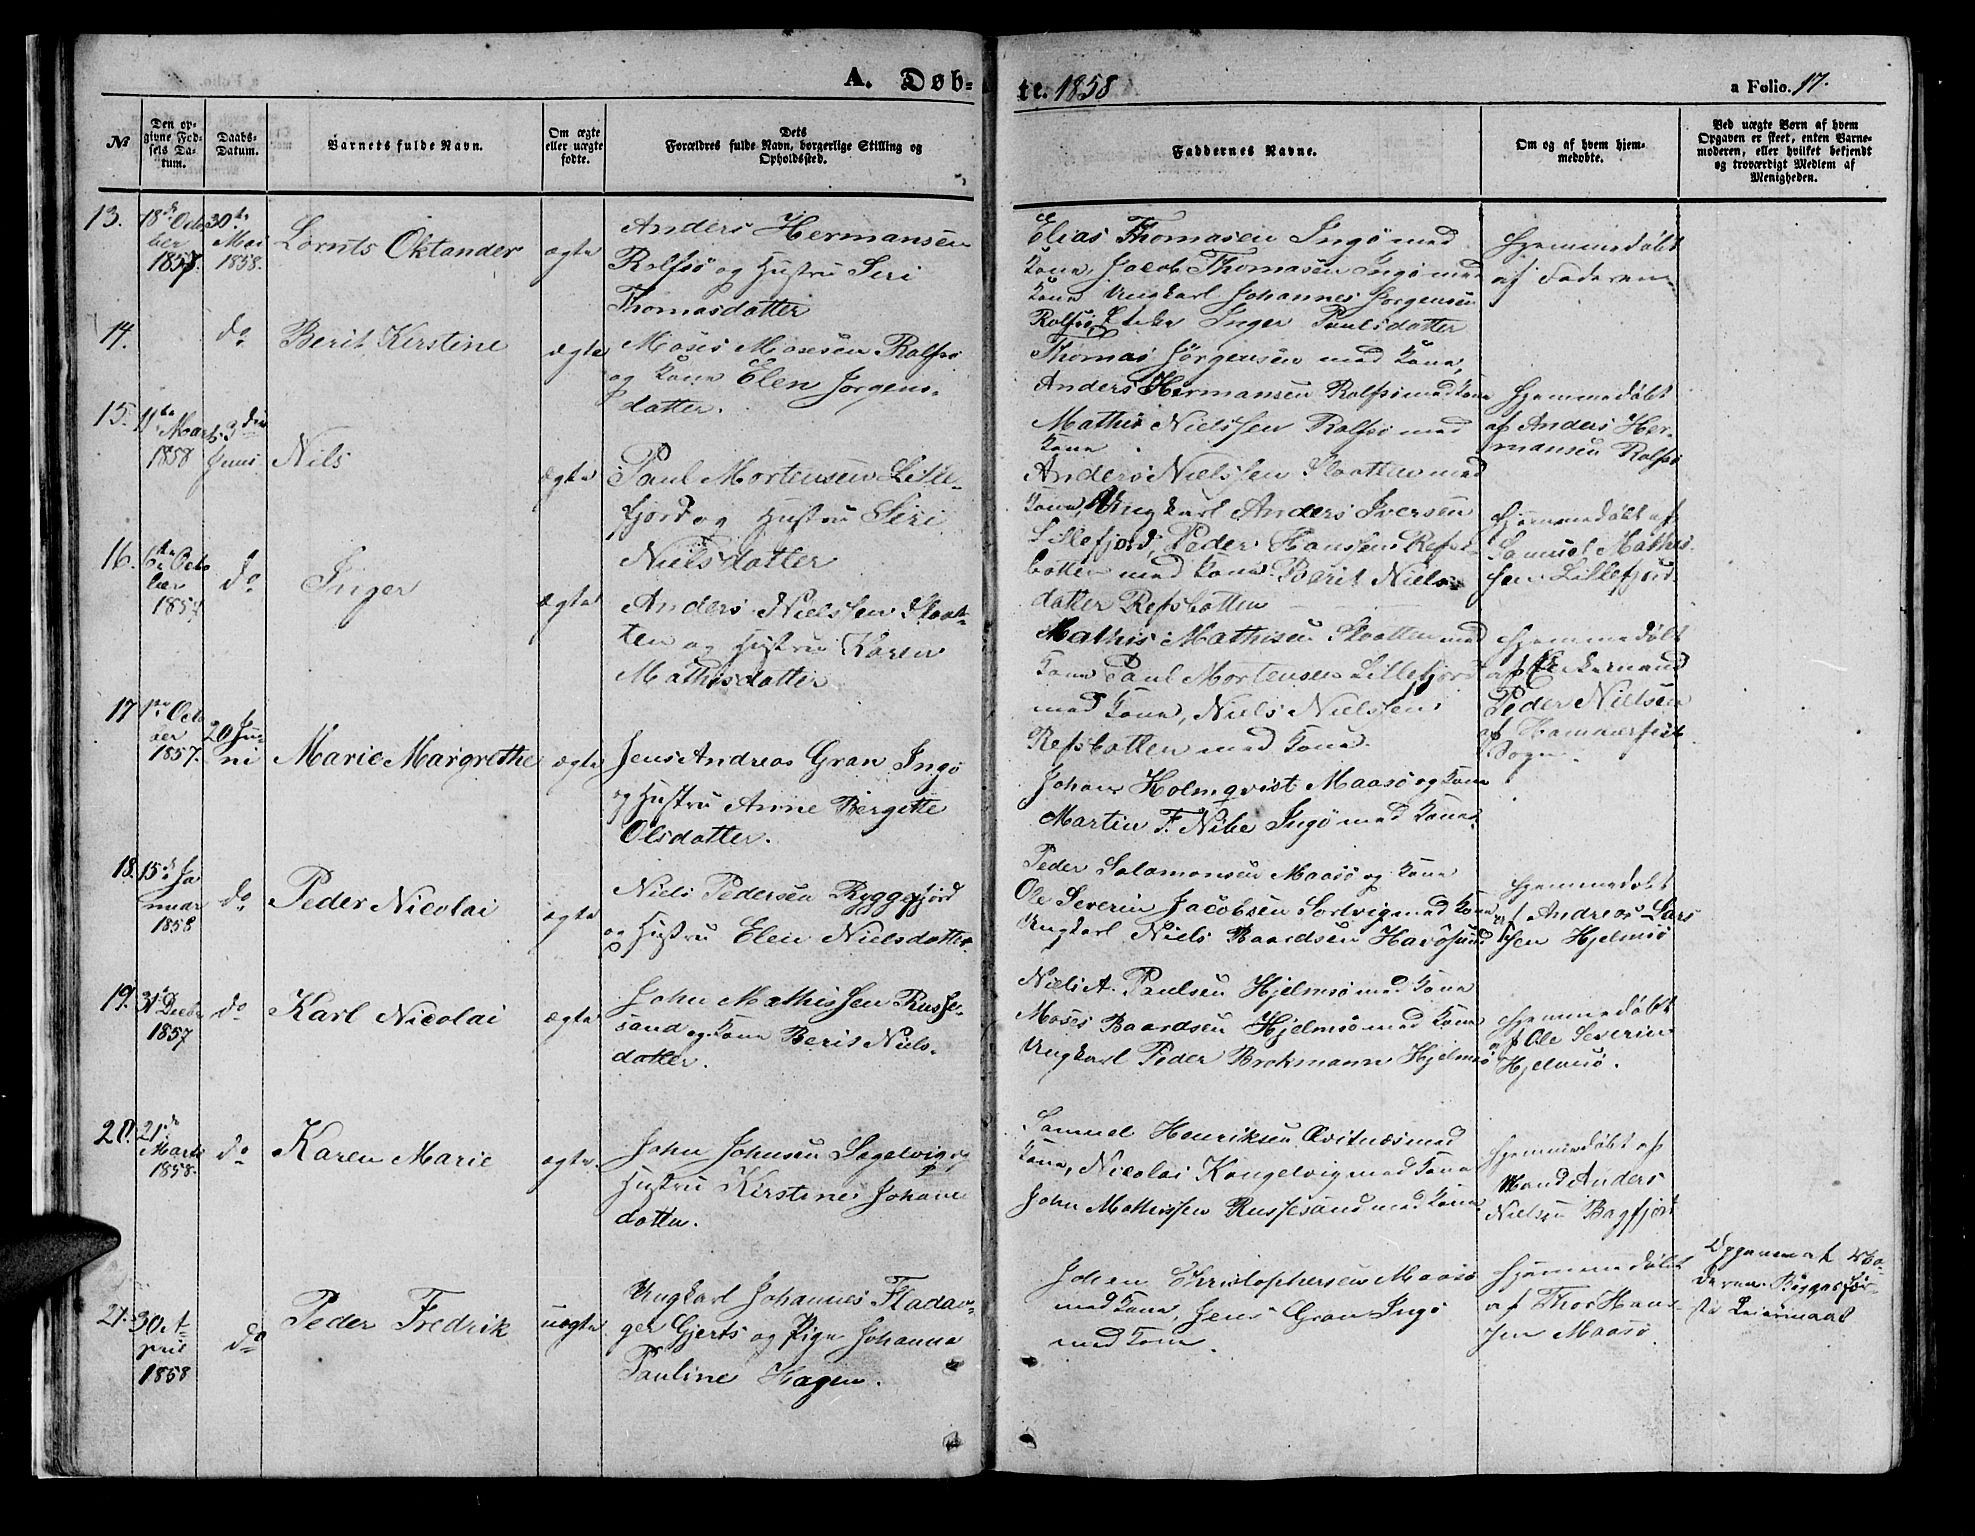 A. Døb-
te. 1858
a Folio. 17.
№
Den op-
givne Fød-
sels Da-
tum.
Daabs-
Datum.
Barnets fulde Navn.
Om ægte
eller uægte
fødte.
Dets
Forældres fulde Navn, borgerlige Stilling og
Opholdssted.
Faddernes Navne.
Om og af hvem hjem-
medøbte.
Ved uægte Børn af hvem
Opgaven er skeet, enten Barne-
moderen, eller hvilket bekjendt
og troværdigt Medlem af
Menigheden.
13.
18de Octo
ber
1857.
30te
Mai
1858.
Lornts Oktander
ægte
Anders Hermansen
Rolfsö og Hustru Siri
Thomasdatter
Elias Thomasen Ingö med
Kone, Jacob Thomasen Ingö med
Kone Ungkarl Johannes Jörgensen
Rolfsö, Enke Inger Paulsdatter
Hjemmedöbt
af Faderen
14.
do
Berit Kirstine
ægte
Moses Mosesen Rolfsö
og Kone Elen Jörgens-
datter.
Thomas Jörgensen med Kone,
Anders Hermansen Rolfsö med Kone
Mathis Nielssen Rolfsö med
Kone
Hjemmedöbt
af Anders Her-
mansen Rolfsö
15.
11te
Marts
1858
3die
Juni
Nils
ægte
Paul Mortensen Lille-
fjord og Hustru Siri
Nielsdatter
Anders Nielssen Slaatten med
Kone, Ungkarl Anders Iversen
Lillefjord, Peder Hansen Refs-
botten med Kone. Berit Niels-
datter Refsbotten
Hjemmedöbt af
Samuel Mathis
sen Lillefjord
16.
6te Octo
ber
1857
do
Inger
ægte
Anders Nielssen Slaat-
ten og Hustru Karen
Mathisdatter
Mathis Mathisen Slaatten med
Kone Paul Mortensen Lillefjord
med Kone, Niels Nielssen
Refsbotten med Kone.
Hjemmedöbt
af
Peder Nielsen
Hammerfest
Sogn.
17
1ste Octo
ber
1857.
20 Ju-
ni
Marie Margrethe
ægte
Jens Andreas Gran Ingö
og Hustru Anne Bergitte
Olsdatter.
Johan Holmqvist Maasö og Kone
Martin F. Nibe Ingö med Kone.
18.
15de Ja
nuar
1858
do
Peder Nicolai
ægte
Niels Pedersen Ryggefjord
og Hustru Elen Nielsdatter
Peder Salomonsen Maasö og Kone
Ole Severin Jacobsen Sortvig med Kone
Ungkarl Niels Baardsen Havösund
Hjemmedöbt
af Andreas Lars
sen Hjelmsö
19.
31te Decbr
1857
do
Karl Nicolai
ægte
John Mathissen Russe-
sand og Kone Berit Niels-
datter.
Niels A. Paulsen Hjelmsö med Kone
Moses Baardsen Hjelmsö med Kone
Ungkarl Peder Brokmann Hjelmsö
Hjemmedöbt
af Ole Severin
Hjelmsö.
20.
21de
Marts
1858.
do
Karen Marie
ægte.
John Johnsen Sagelvig og
Hustru Kirstine Johane
datter.
Samuel Henriksen Qvitnæs med
Kone, Nicolai Kongelvig med Kone
John Mathissen Russesand med Kone
Hjemmedöbt af
Mand Anders
Nielsen Bagfjord
21.
30 A-
pril
1858
do
Peder Fredrik
uægte
Ungkarl Johannes Fladaa-
ger Gjerts og Pige Johanna
Pauline Hagen.
Johan Christophersen Maasö
med Kone, Jens Gran Ingö
med Kone.
Hjemmedöbt
af Thor Han-
sen Maasö.
Opgivne af Mo-
deren. Begges för-
ste Leiermaal